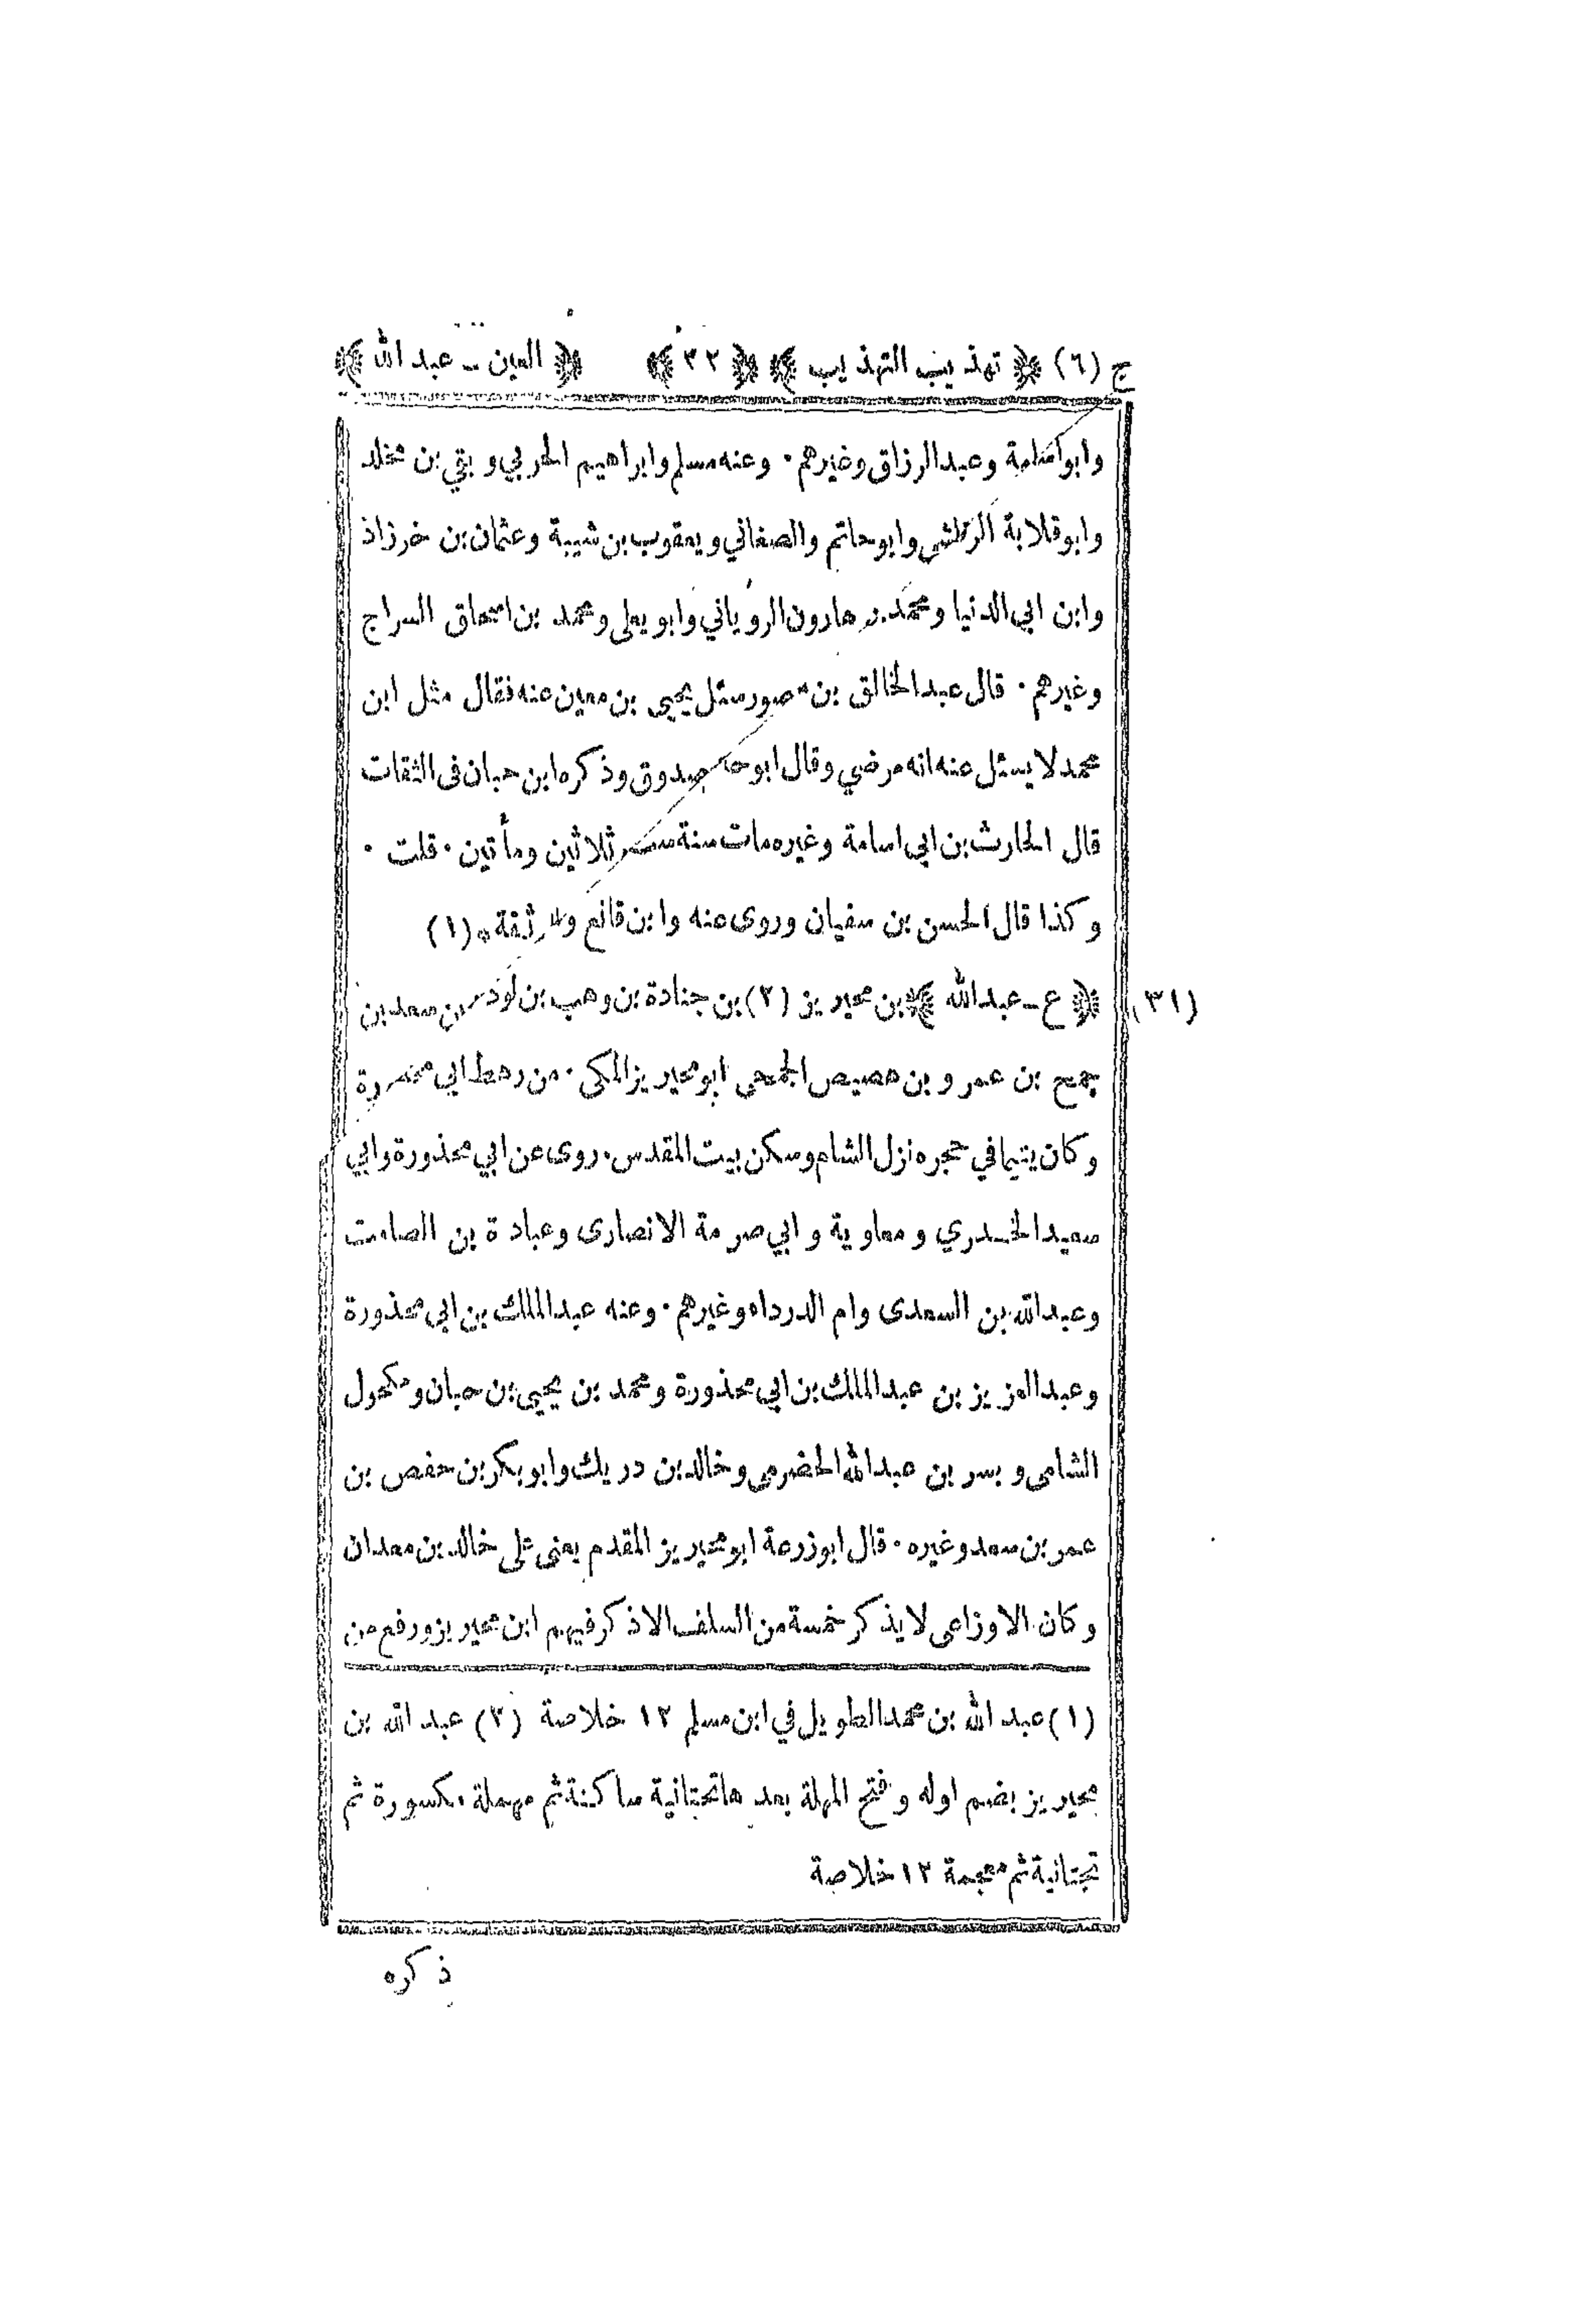 ج (٦) ﴿ تهذيب التهذيب ﴾ ﴿ ٣٢ ﴾ ﴿ العين - عبد الله ﴾
وابو اسامة وعبدالرزاق وغيرهم . وعنه مسلم وابراهيم الحربي وبقي بن مخلد
وابو قلابة الرقاشي وابو حاتم والصغاني ويعقوب بن شيبة وعثمان بن خرزاذ
وابن ابي الدنيا ومحمد بن هارون الروياني وابو يعلى ومحمد بن اسحاق السراج
وغيرهم . قال عبدالخالق بن منصور سئل يحيى بن معين عنه فقال مثل ابن
محمد لا يسئل عنه انه مرضي وقال ابو حا صدوق وذكره ابن حبان في الثقات
قال الحارث بن ابي اسامة وغيره مات سنة ثلاثين ومأتين . قلت .
وكذا قال الحسن بن سفيان وروى عنه وابن قانع ثقة . (١)
(٣١) ﴿ ع - عبدالله ﴾ بن محيريز (٢) بن جنادة بن وهب بن لوذ بن سعد بن
جمح بن عمرو بن هصيص الجمحي ابو محيريز المكي . من رهط ابي
وكان يتيما في حجره نزل الشام وسكن بيت المقدس . روى عن ابي محذورة وابي
سعيد الخدري ومعاوية وابي صرمة الانصاري وعبادة بن الصامت
وعبدالله بن السعدى وام الدرداء وغيرهم . وعنه عبدالملك بن ابي محذورة
وعبدالعزيز بن عبدالملك بن ابي محذورة ومحمد بن يحيى بن حبان ومكحول
الشامى وبسر بن عبدالله الحضرمى وخالد بن دريك وابو بكر بن حفص بن
عمر بن سعد وغيره . قال ابو زرعة ابو محيريز المقدم يعنى على خالد بن معدان
وكان الاوزاعى لا يذكر خمسة من السلف الا ذكر فيهم ابن محيريز ورفع من
(١) عبد الله بن محمد الطويل في ابن مسلم ١٢ خلاصة (٢) عبد الله بن
محيريز بضم اوله وفتح المهملة بعد ها تحتانية ساكنة ثم مهملة مكسورة ثم
تحتانية ثم معجمة ١٢ خلاصة
ذكره